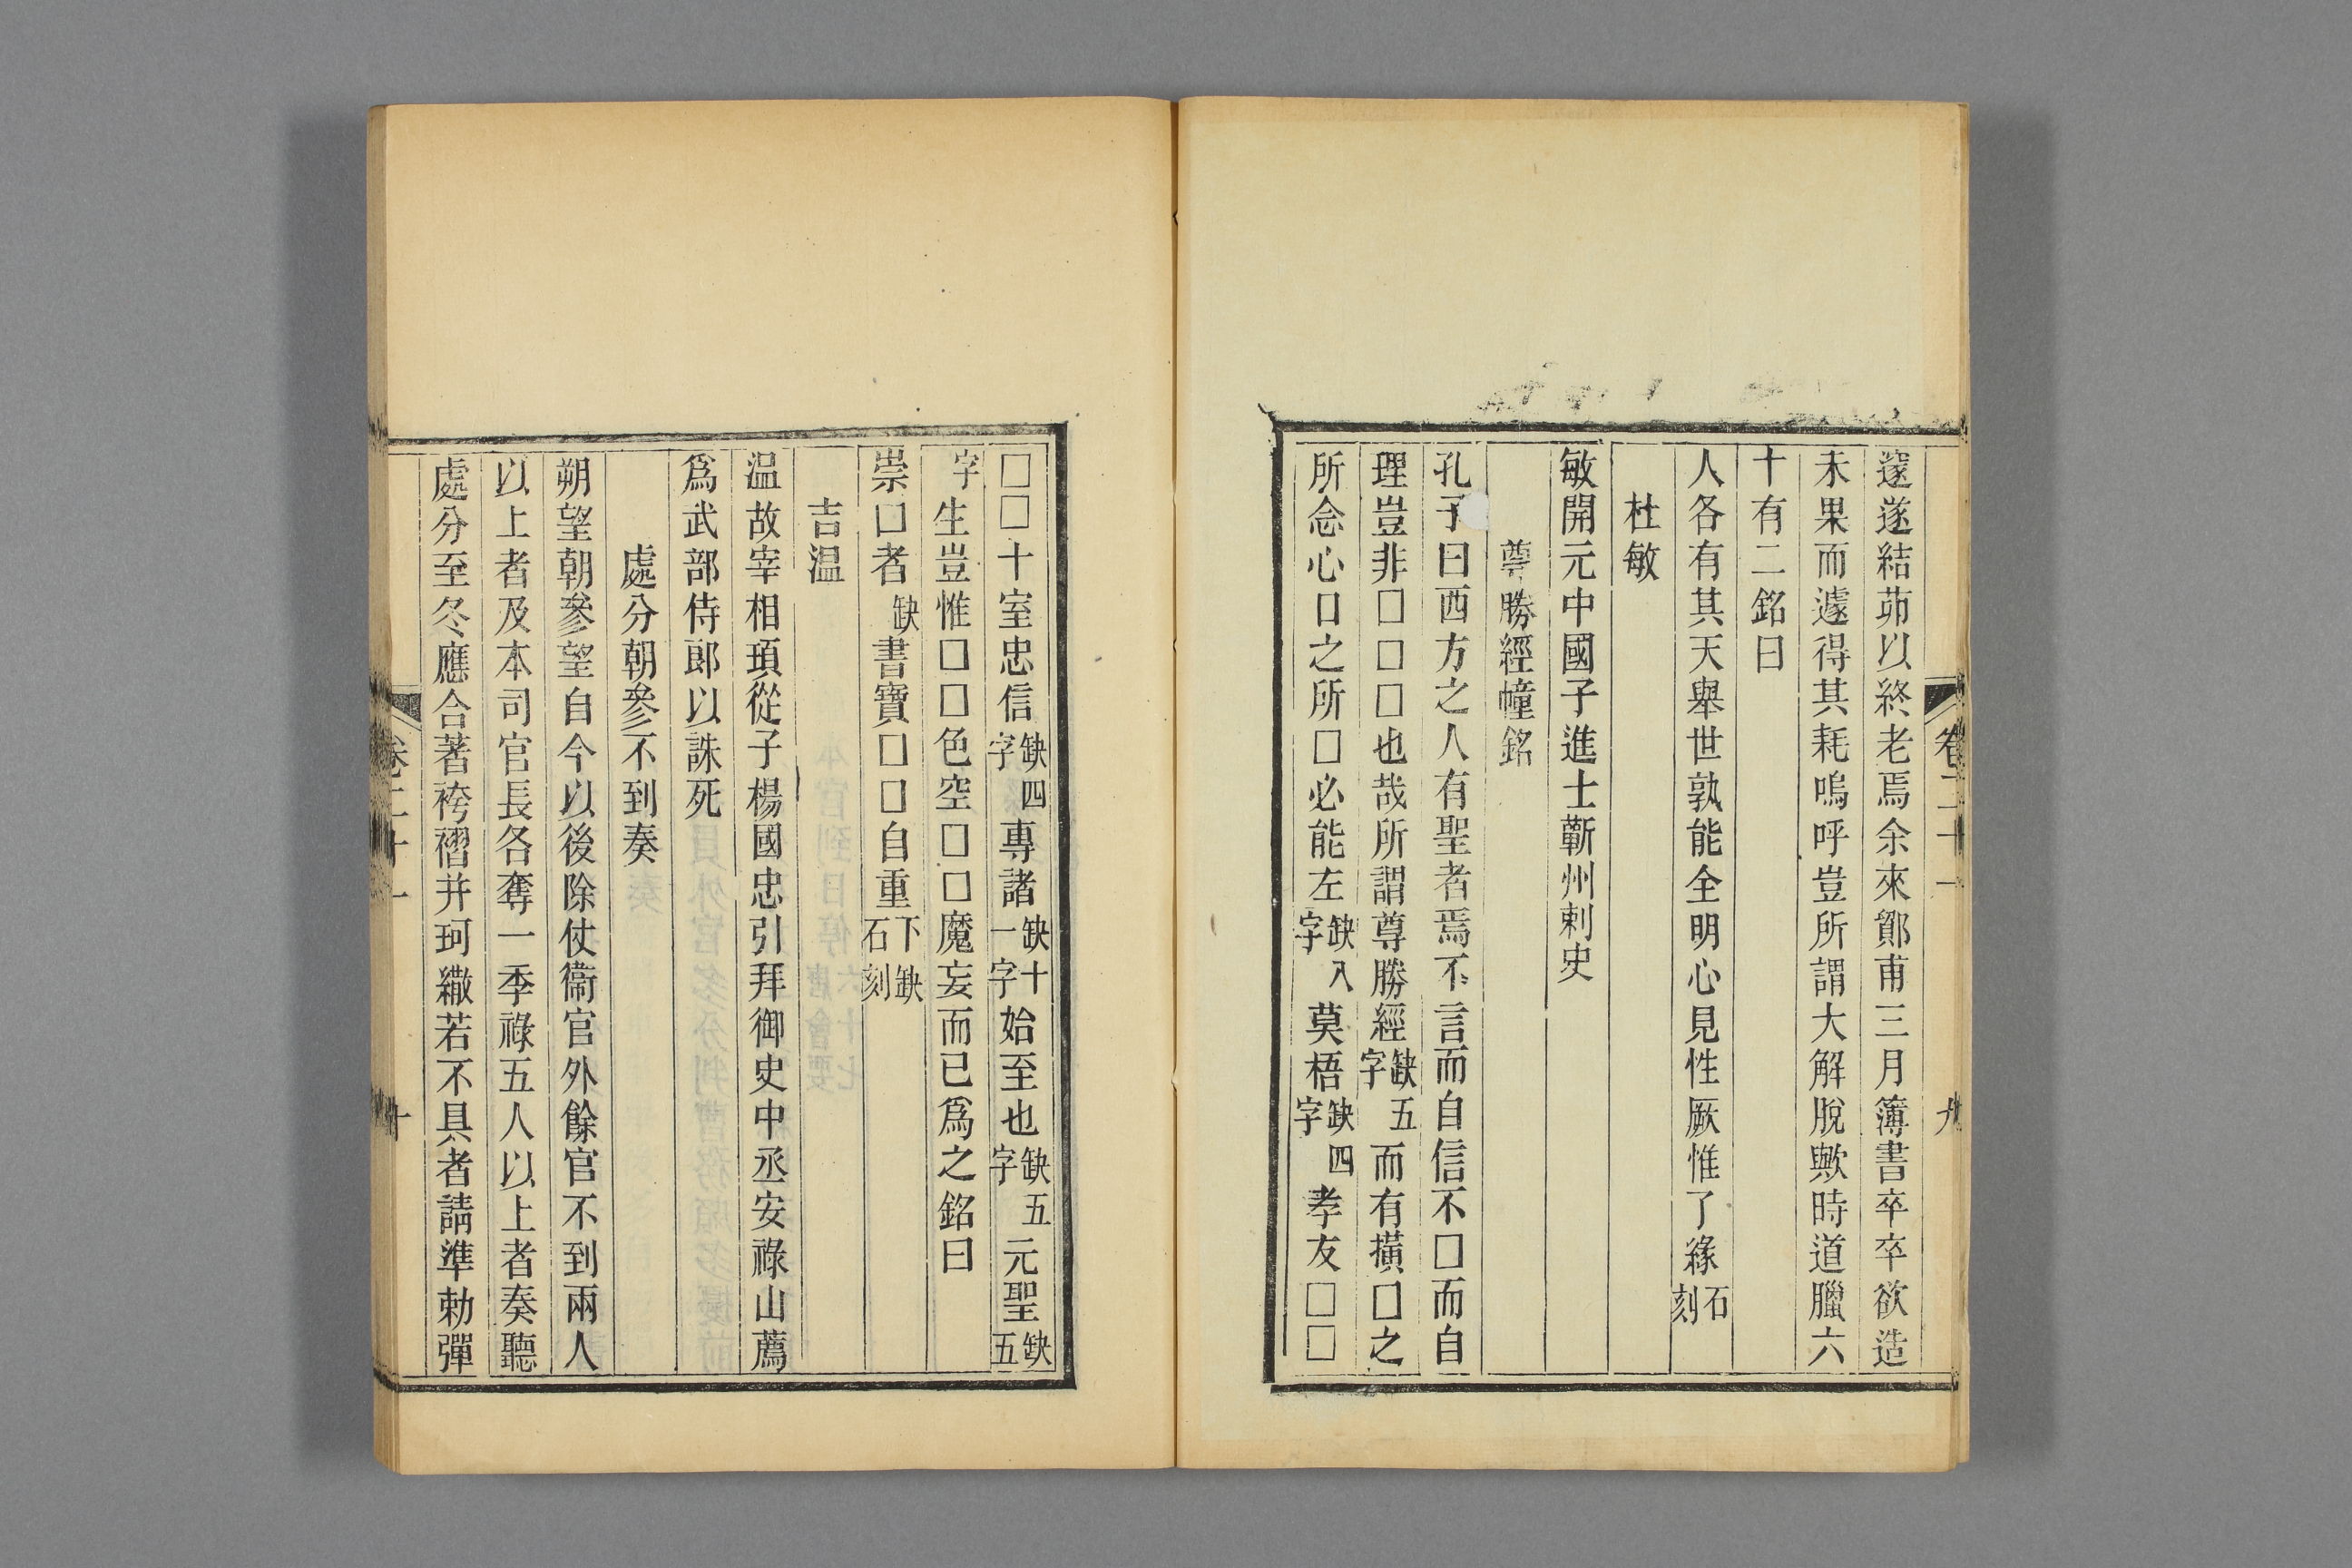 邃遂結茆以終老焉余來鄮甫三月簿書卒卒欲造
未果而遽得其耗嗚呼豈所謂大解脫歟時道臘六
十有二銘曰
人各有其天舉世孰能全明心見性厥惟了緣石刻
杜敏
敏開元中國子進士蘄州刺史
尊勝經幢銘
孔子曰西方之人有聖者焉不言而自信不□而自
理豈非□□□也哉所謂尊勝經缺五字而有橫□之
所念心口之所□必能左缺八字莫梧缺四字孝友□□
卷二十一
九
□□十室忠信缺四字專諸缺十一字始至也缺五字元聖缺五
字生豈惟□□色空□□魔妄而已爲之銘曰
崇□者缺書寶□□自重下缺石刻
吉溫
溫故宰相頊從子楊國忠引拜御史中丞安祿山薦
爲武部侍郎以誅死
處分朝參不到奏
朔望朝參望自今以後除仗衞官外餘官不到兩人
以上者及本司官長各奪一季祿五人以上者奏聽
處分至冬應合著袴褶并珂繖若不具者請準勅彈
卷二十一
十